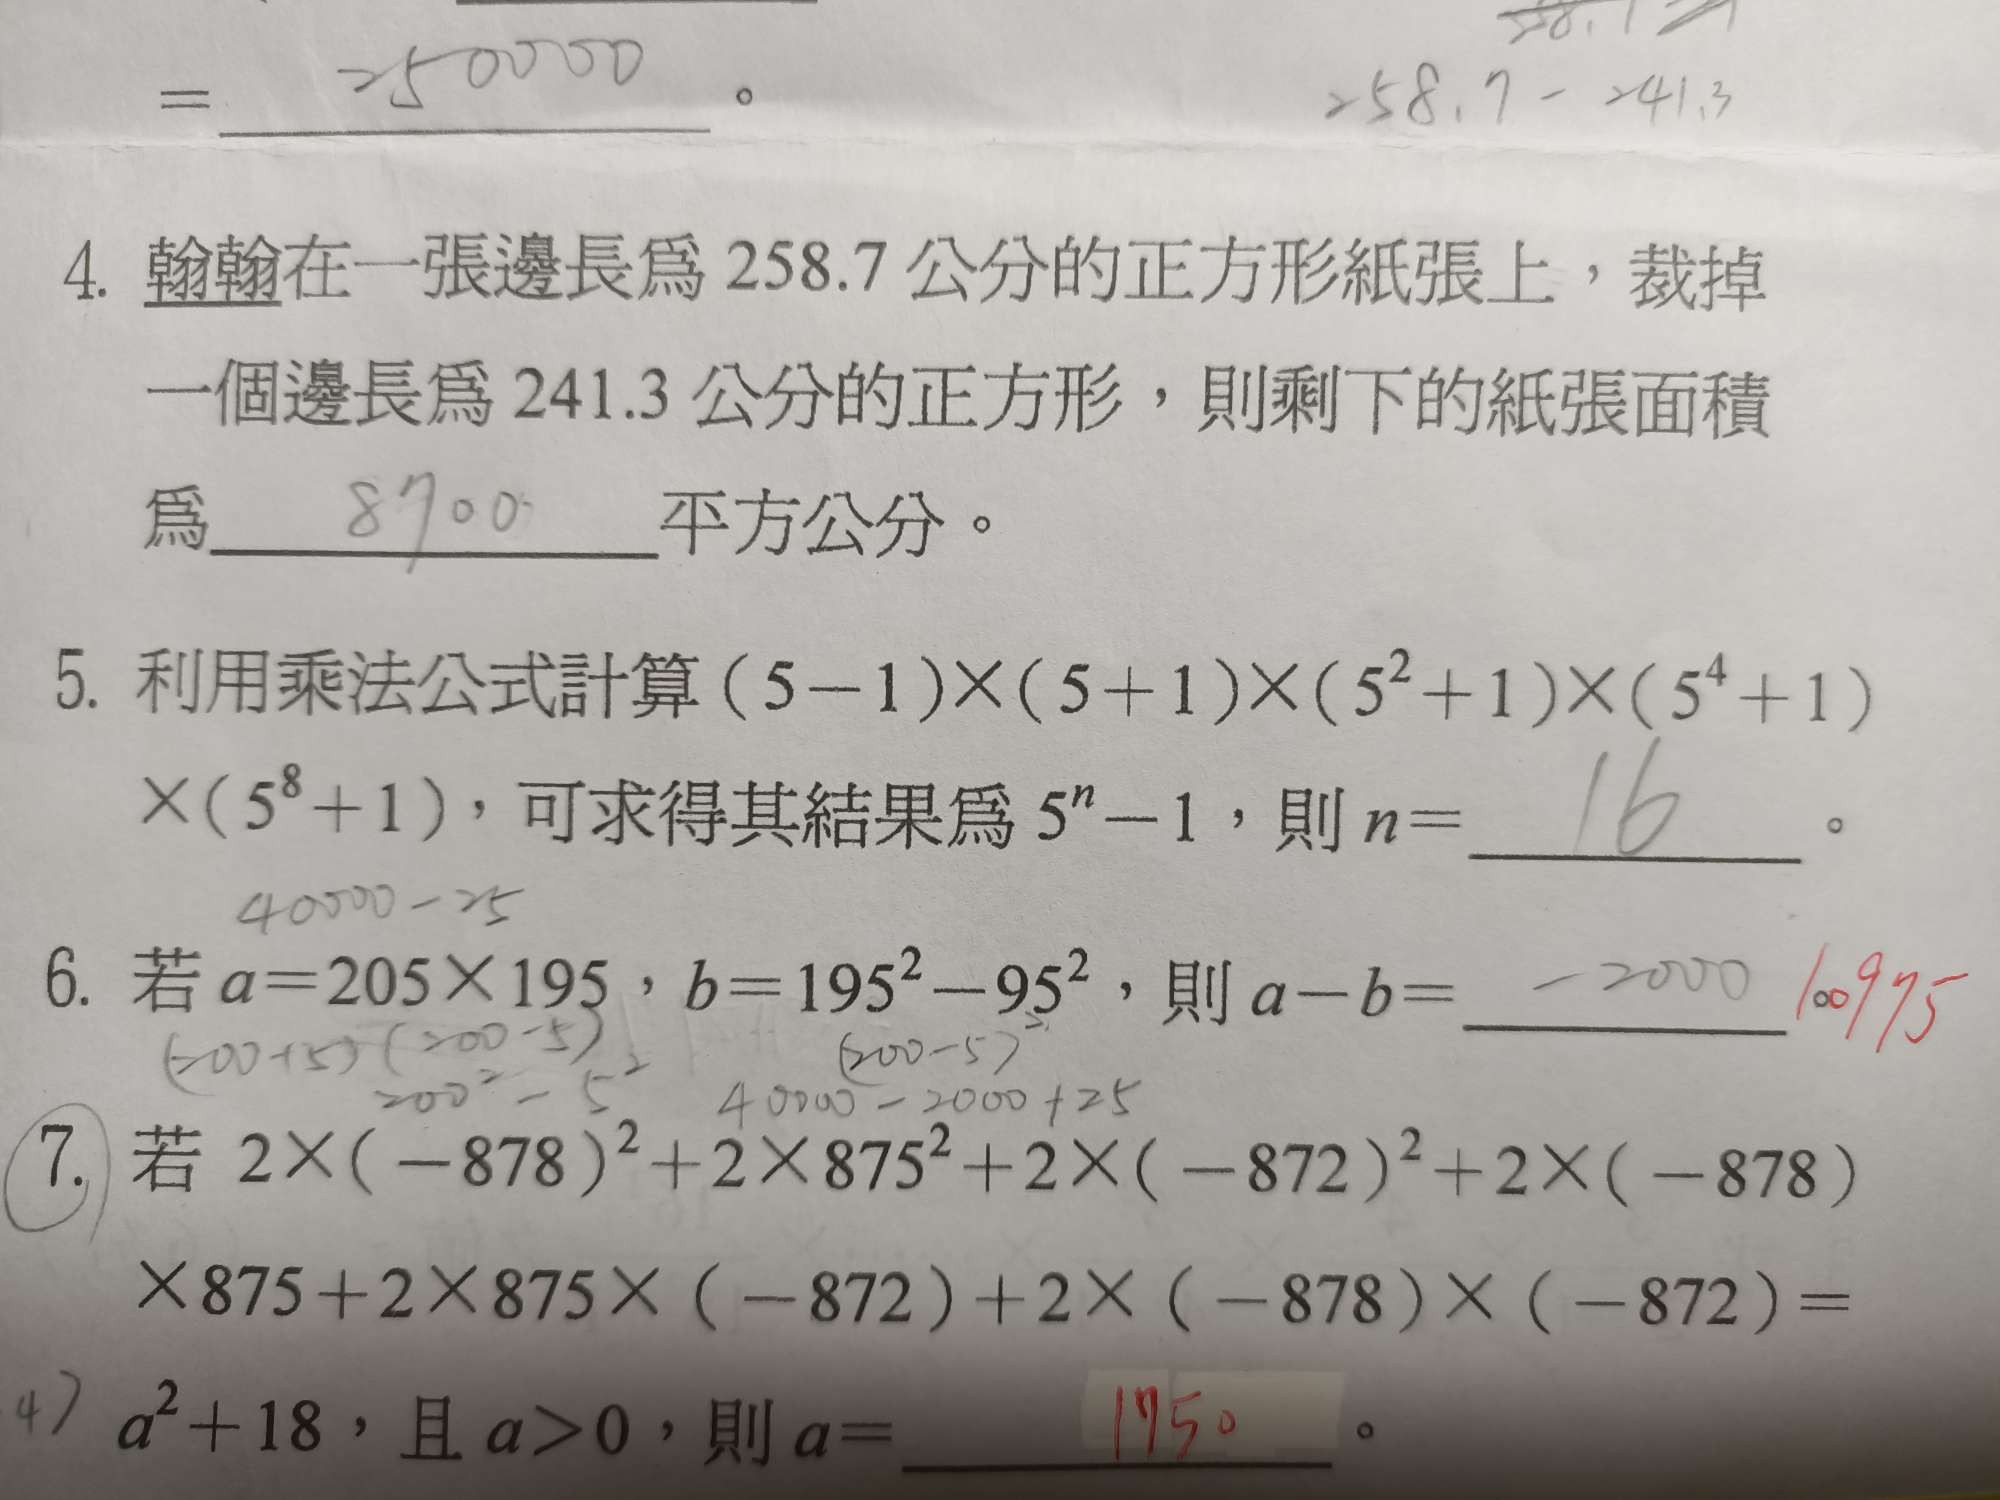 258.7-241.3
= 250000 。
4. 翰翰在一張邊長為 258.7 公分的正方形紙張上，裁掉
一個邊長為 241.3 公分的正方形，則剩下的紙張面積
為 8700 平方公分。
5. 利用乘法公式計算(5-1)×(5+1)×(5²+1)×(5⁴+1)
×(5⁸+1)，可求得其結果為 5ⁿ-1，則 n= 16 。
40000-25
6. 若 a=205×195，b=195²-95²，則 a-b= -2000 。 10975
(200+5)(200-5) (200-5)²
200²-5² 40000-2000+25
7. 若 2×(-878)²+2×875²+2×(-872)²+2×(-878)
×875+2×875×(-872)+2×(-878)×(-872)=
4) a²+18，且 a>0，則 a= 1750 。